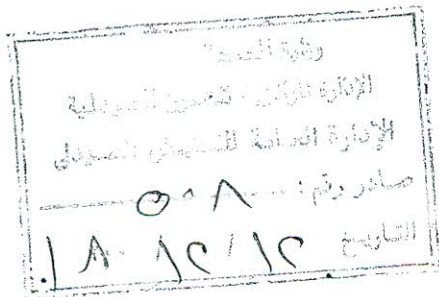 وزارة الصحة
الإدارة المركزية للشئون الصيدلية
الإدارة العامة للتفتيش الصيدلى
صادر رقم : ٥٠٨
التاريخ